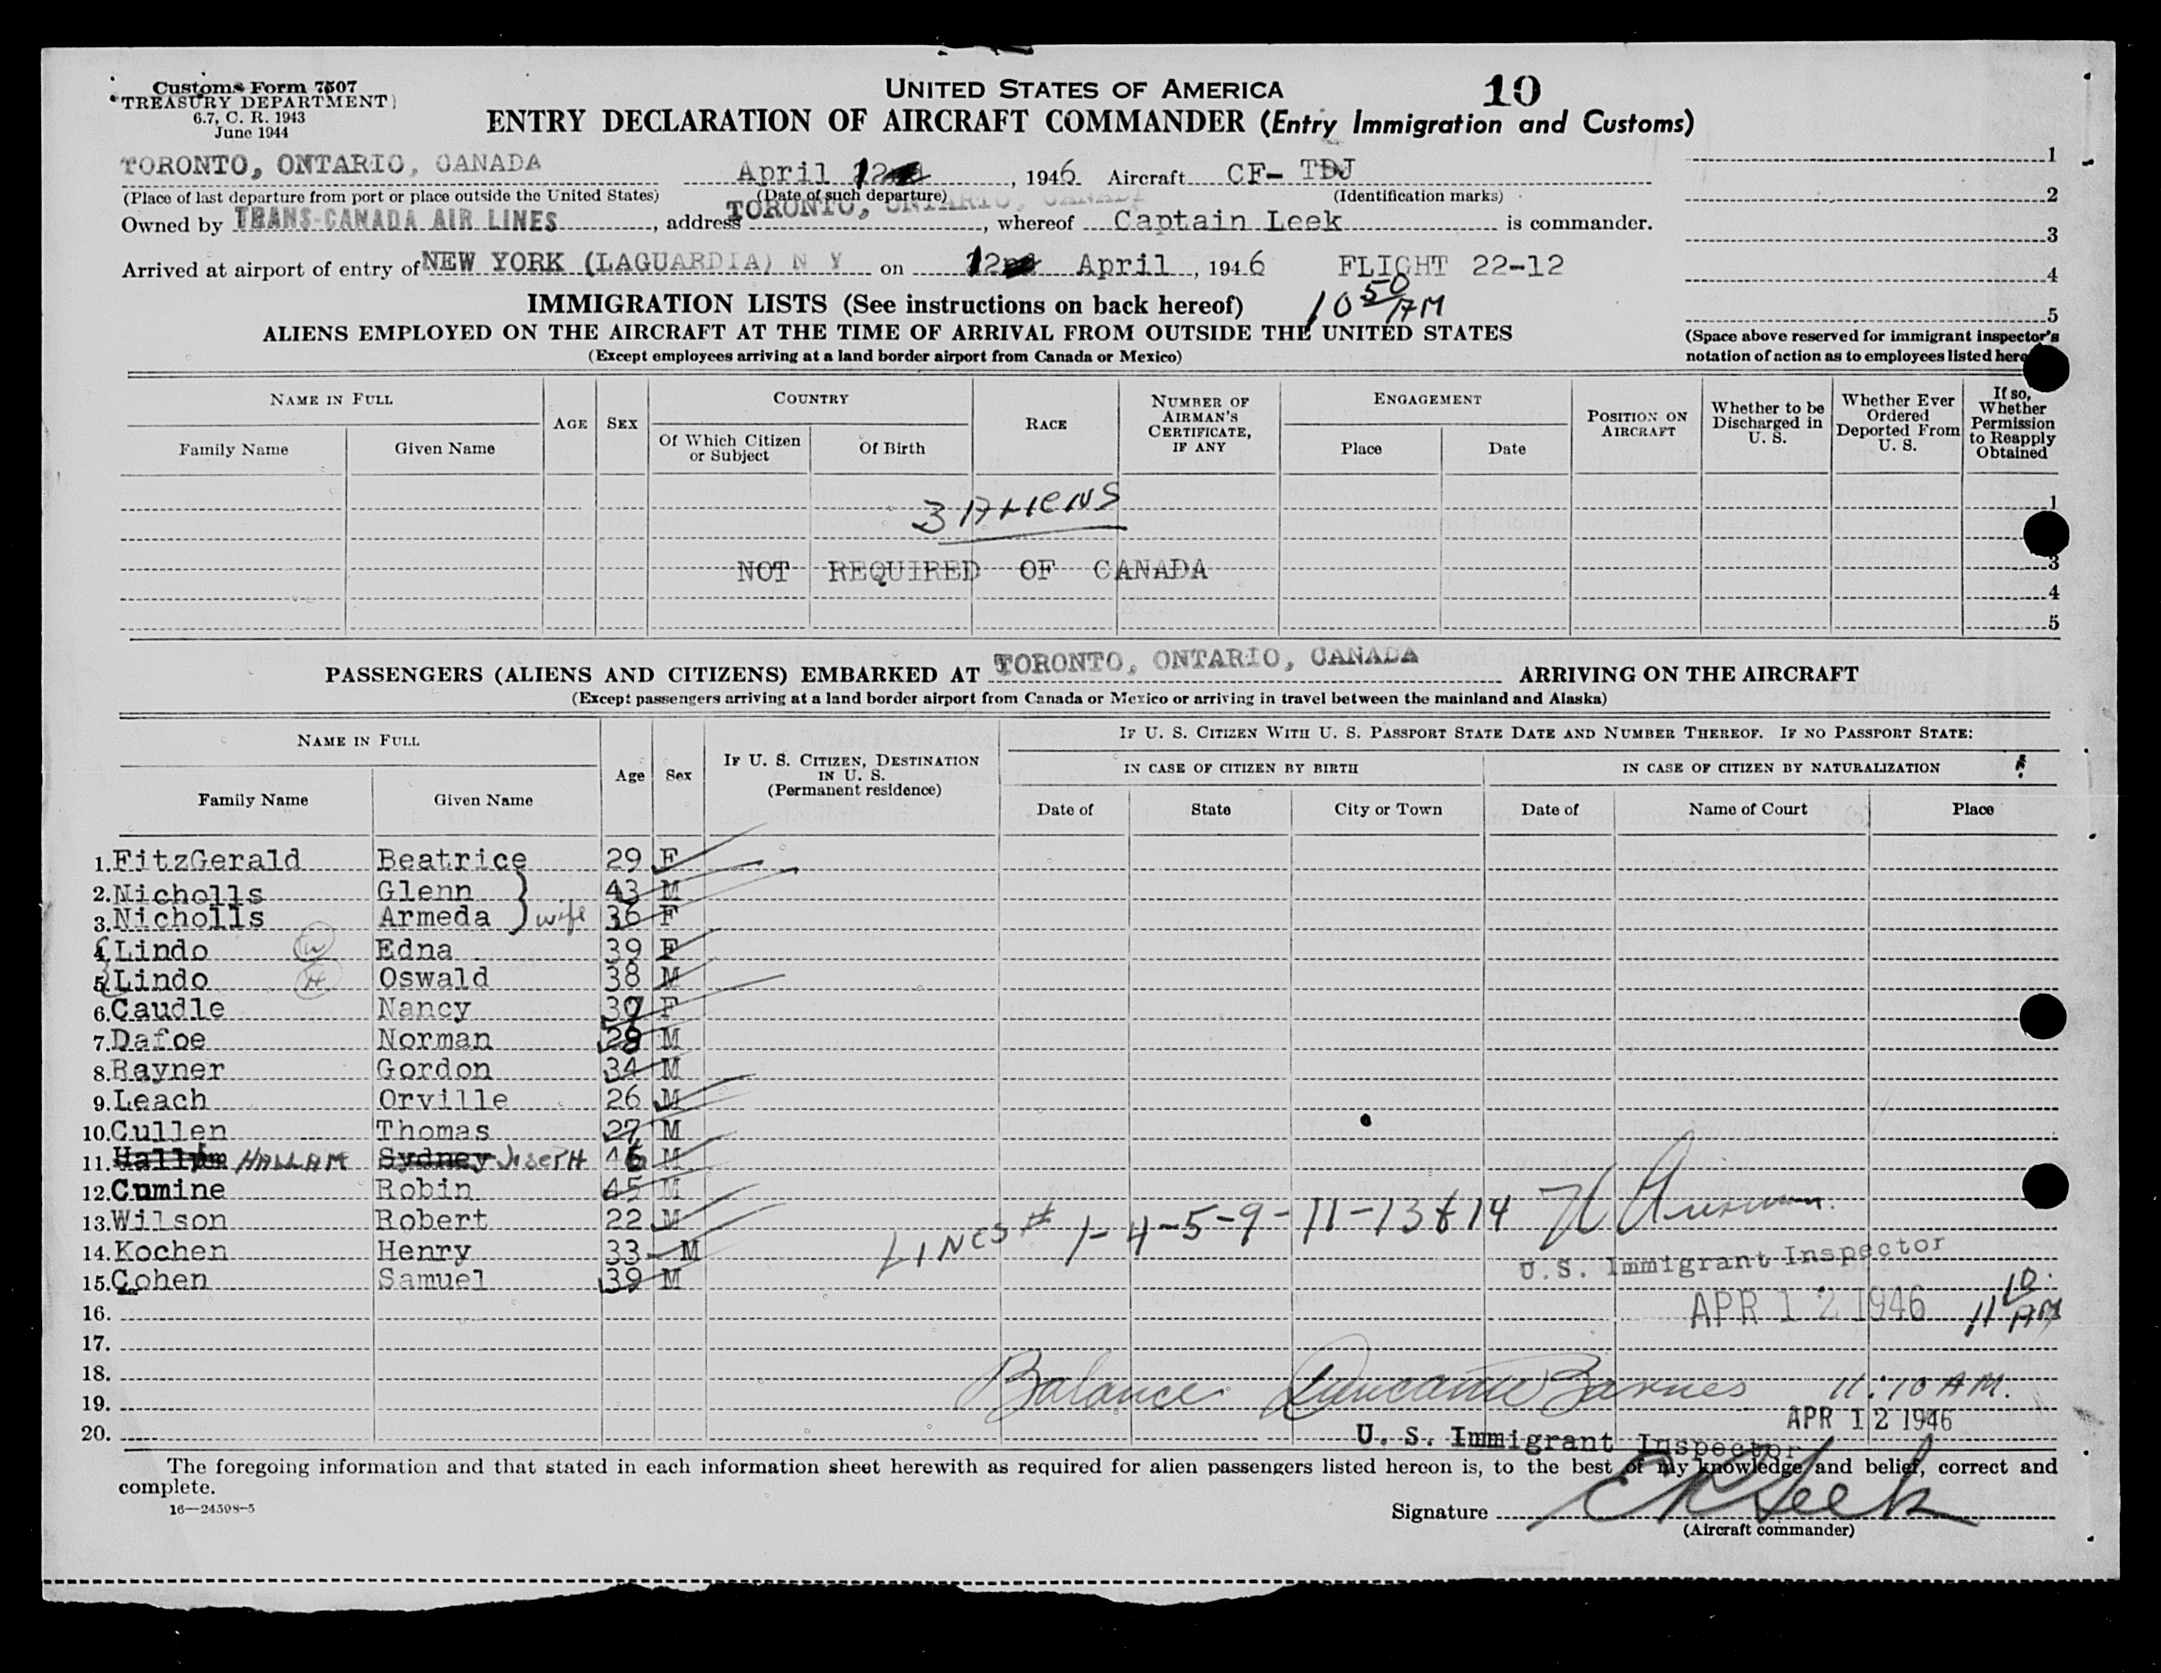 Customs Form 7507
TREASURY DEPARTMENT
6.7, C. R. 1943
June 1944
UNITED STATES OF AMERICA
10
ENTRY DECLARATION OF AIRCRAFT COMMANDER (Entry Immigration and Customs)
TORONTO, ONTARIO, CANADA April 12 , 1946 Aircraft CF- TDJ
(Place of last departure from port or place outside the United States) (Date of such departure) (Identification marks)
Owned by TRANS-CANADA AIR LINES, address TORONTO, ONTARIO, CANADA, whereof Captain Leek is commander.
Arrived at airport of entry of NEW YORK (LAGUARDIA) N Y on 12 April, 1946 FLIGHT 22-12
1
2
3
4
5
IMMIGRATION LISTS (See instructions on back hereof) 10 50/AM
ALIENS EMPLOYED ON THE AIRCRAFT AT THE TIME OF ARRIVAL FROM OUTSIDE THE UNITED STATES
(Except employees arriving at a land border airport from Canada or Mexico)
(Space above reserved for immigrant inspector's
notation of action as to employees listed here
NAME IN FULL
Family Name Given Name
AGE SEX
COUNTRY
Of Which Citizen or Subject Of Birth
RACE
NUMBER OF AIRMAN'S CERTIFICATE, IF ANY
ENGAGEMENT
Place Date
POSITION ON AIRCRAFT
Whether to be Discharged in U. S.
Whether Ever Ordered Deported From U. S.
If so, Whether Permission to Reapply Obtained
1
3 ALIENS
NOT REQUIRED OF CANADA 3
4
5
PASSENGERS (ALIENS AND CITIZENS) EMBARKED AT TORONTO, ONTARIO, CANADA ARRIVING ON THE AIRCRAFT
(Except passengers arriving at a land border airport from Canada or Mexico or arriving in travel between the mainland and Alaska)
NAME IN FULL
Family Name Given Name
Age Sex
IF U. S. CITIZEN, DESTINATION IN U. S. (Permanent residence)
IF U. S. CITIZEN WITH U. S. PASSPORT STATE DATE AND NUMBER THEREOF. IF NO PASSPORT STATE:
IN CASE OF CITIZEN BY BIRTH IN CASE OF CITIZEN BY NATURALIZATION
Date of State City or Town Date of Name of Court Place
1. FitzGerald Beatrice 29 F
2. Nicholls Glenn 43 M
3. Nicholls Armeda } wife 36 F
4. Lindo W Edna 39 F
5. Lindo H Oswald 38 M
6. Caudle Nancy 30 F
7. Dafoe Norman 28 M
8. Rayner Gordon 34 M
9. Leach Orville 26 M
10. Cullen Thomas 27 M
11. HALLAM Sydney JOSEPH 46 M
12. Cumine Robin 45 M
13. Wilson Robert 22 M
14. Kochen Henry 33 M
15. Cohen Samuel 39 M
LINES # 1-4-5-9-11-13 & 14
U.S. Immigrant Inspector
APR 12 1946 11 10 AM
16.
17.
18.
19.
20.
Balance Barnes 11:10 AM.
APR 12 1946
U. S. Immigrant Inspector
The foregoing information and that stated in each information sheet herewith as required for alien passengers listed hereon is, to the best of my knowledge and belief, correct and
complete.
16—24598-5
Signature Leek
(Aircraft commander)